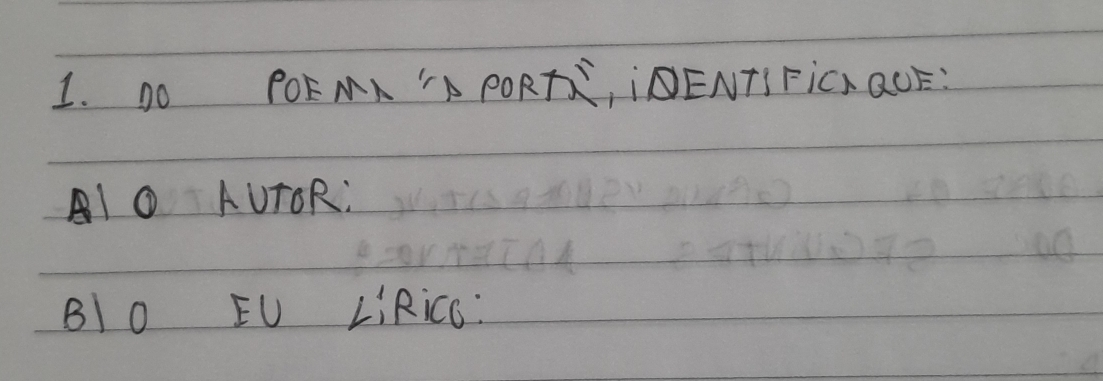 1. DO POEMA "A PORTA", IDENTIFICA QUE:
A) O AUTOR:
B) O EU LÍRICO: